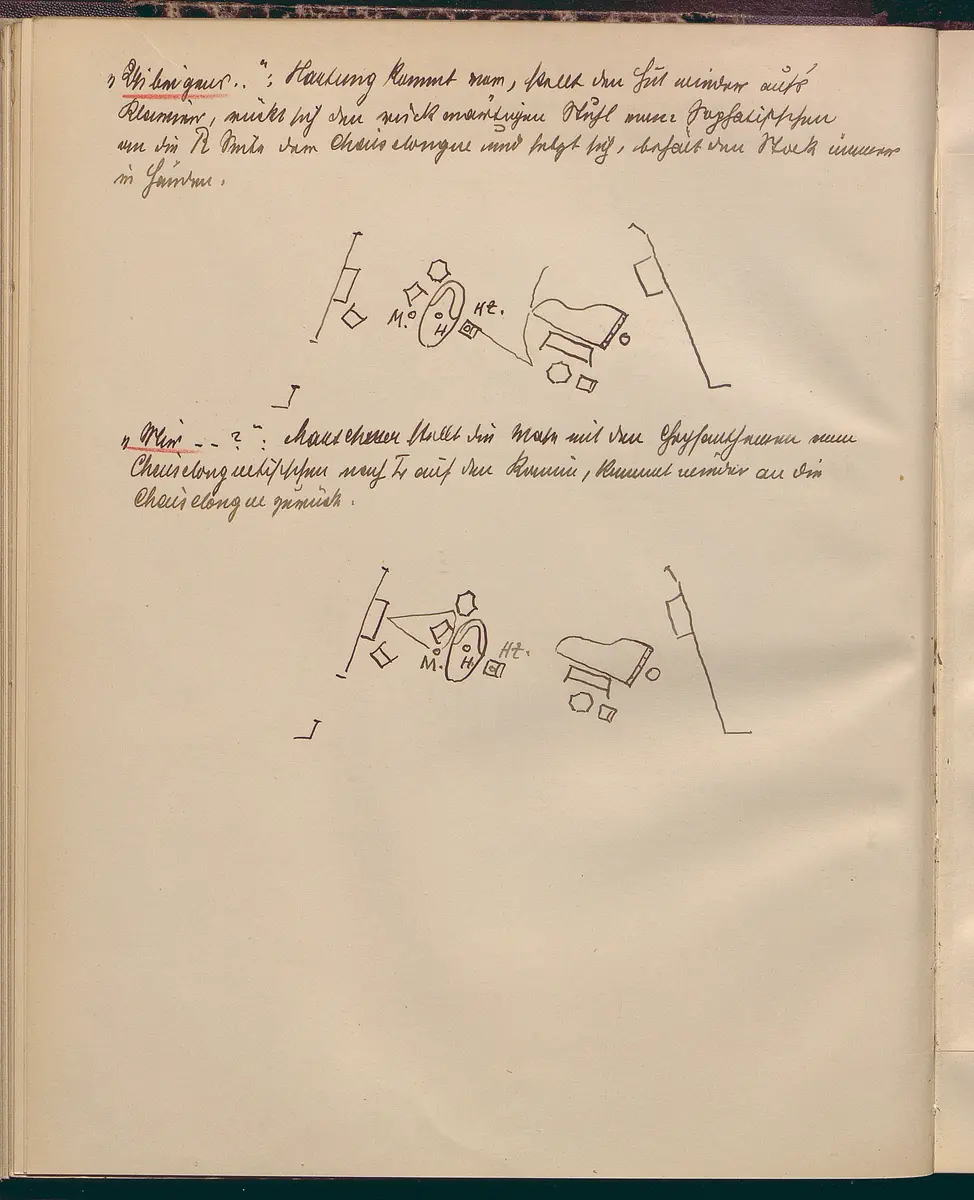 „Übrigens..“: Hartung kommt vor, stellt den Hut wieder auf's
Klavier, rückt sich den rückwärtigen Stuhl vom Sophatischchen
an die R Seite der Chaiselongue und setzt sich, behält den Stock immer
in Händen.
M.
H
HZ.
„Wir - - ?“: stellt die Vase mit den Chrysanthemen vom
Chaiselonguetischchen nach L auf den Kamin, kommt wieder an die
Chaiselongue zurück.
M.
H.
HZ.